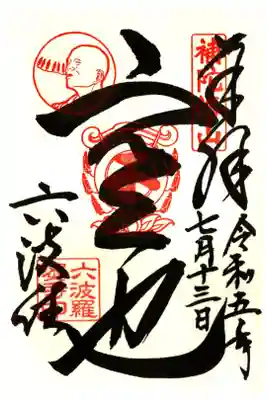 奉拝
補陀洛山
令和五年
七月十三日
空也
六波
六波羅
蜜寺印